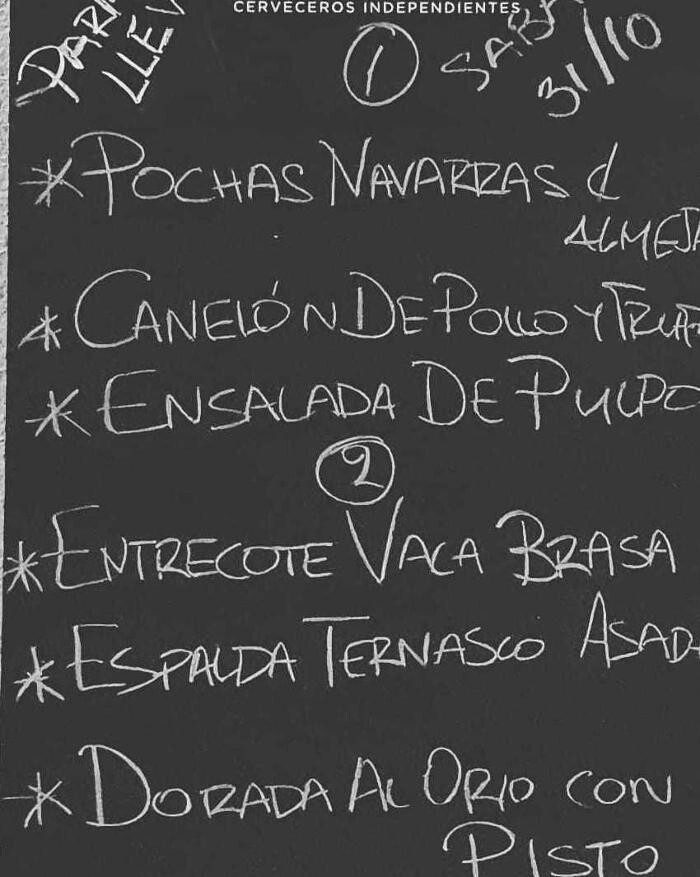 CERVECEROS INDEPENDIENTES
PAR
LLEV
1
SABA
31/10
* POCHAS NAVARRAS C/
ALMEJA
* CANELÓN DE POLLO Y TRUF
* ENSALADA DE PULPO
2
* ENTRECOTE VACA BRASA
* ESPALDA TERNASCO ASADA
* DORADA AL ORIO CON
PISTO